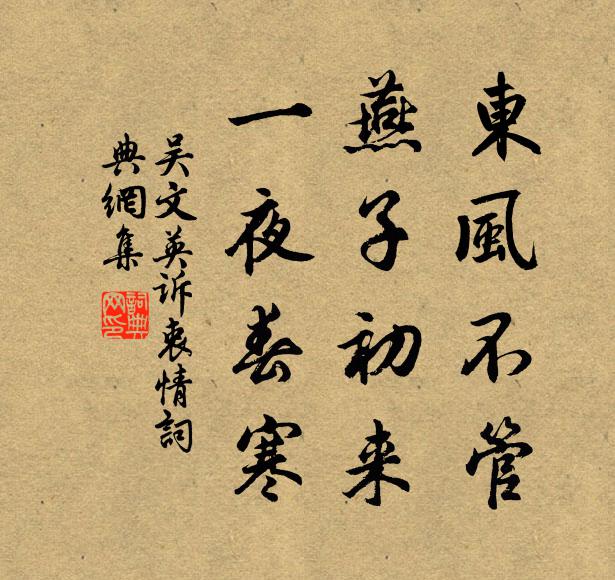 東風不管
燕子初来
一夜春寒
吴文英訴衷情詞
典網集
詞典
网印